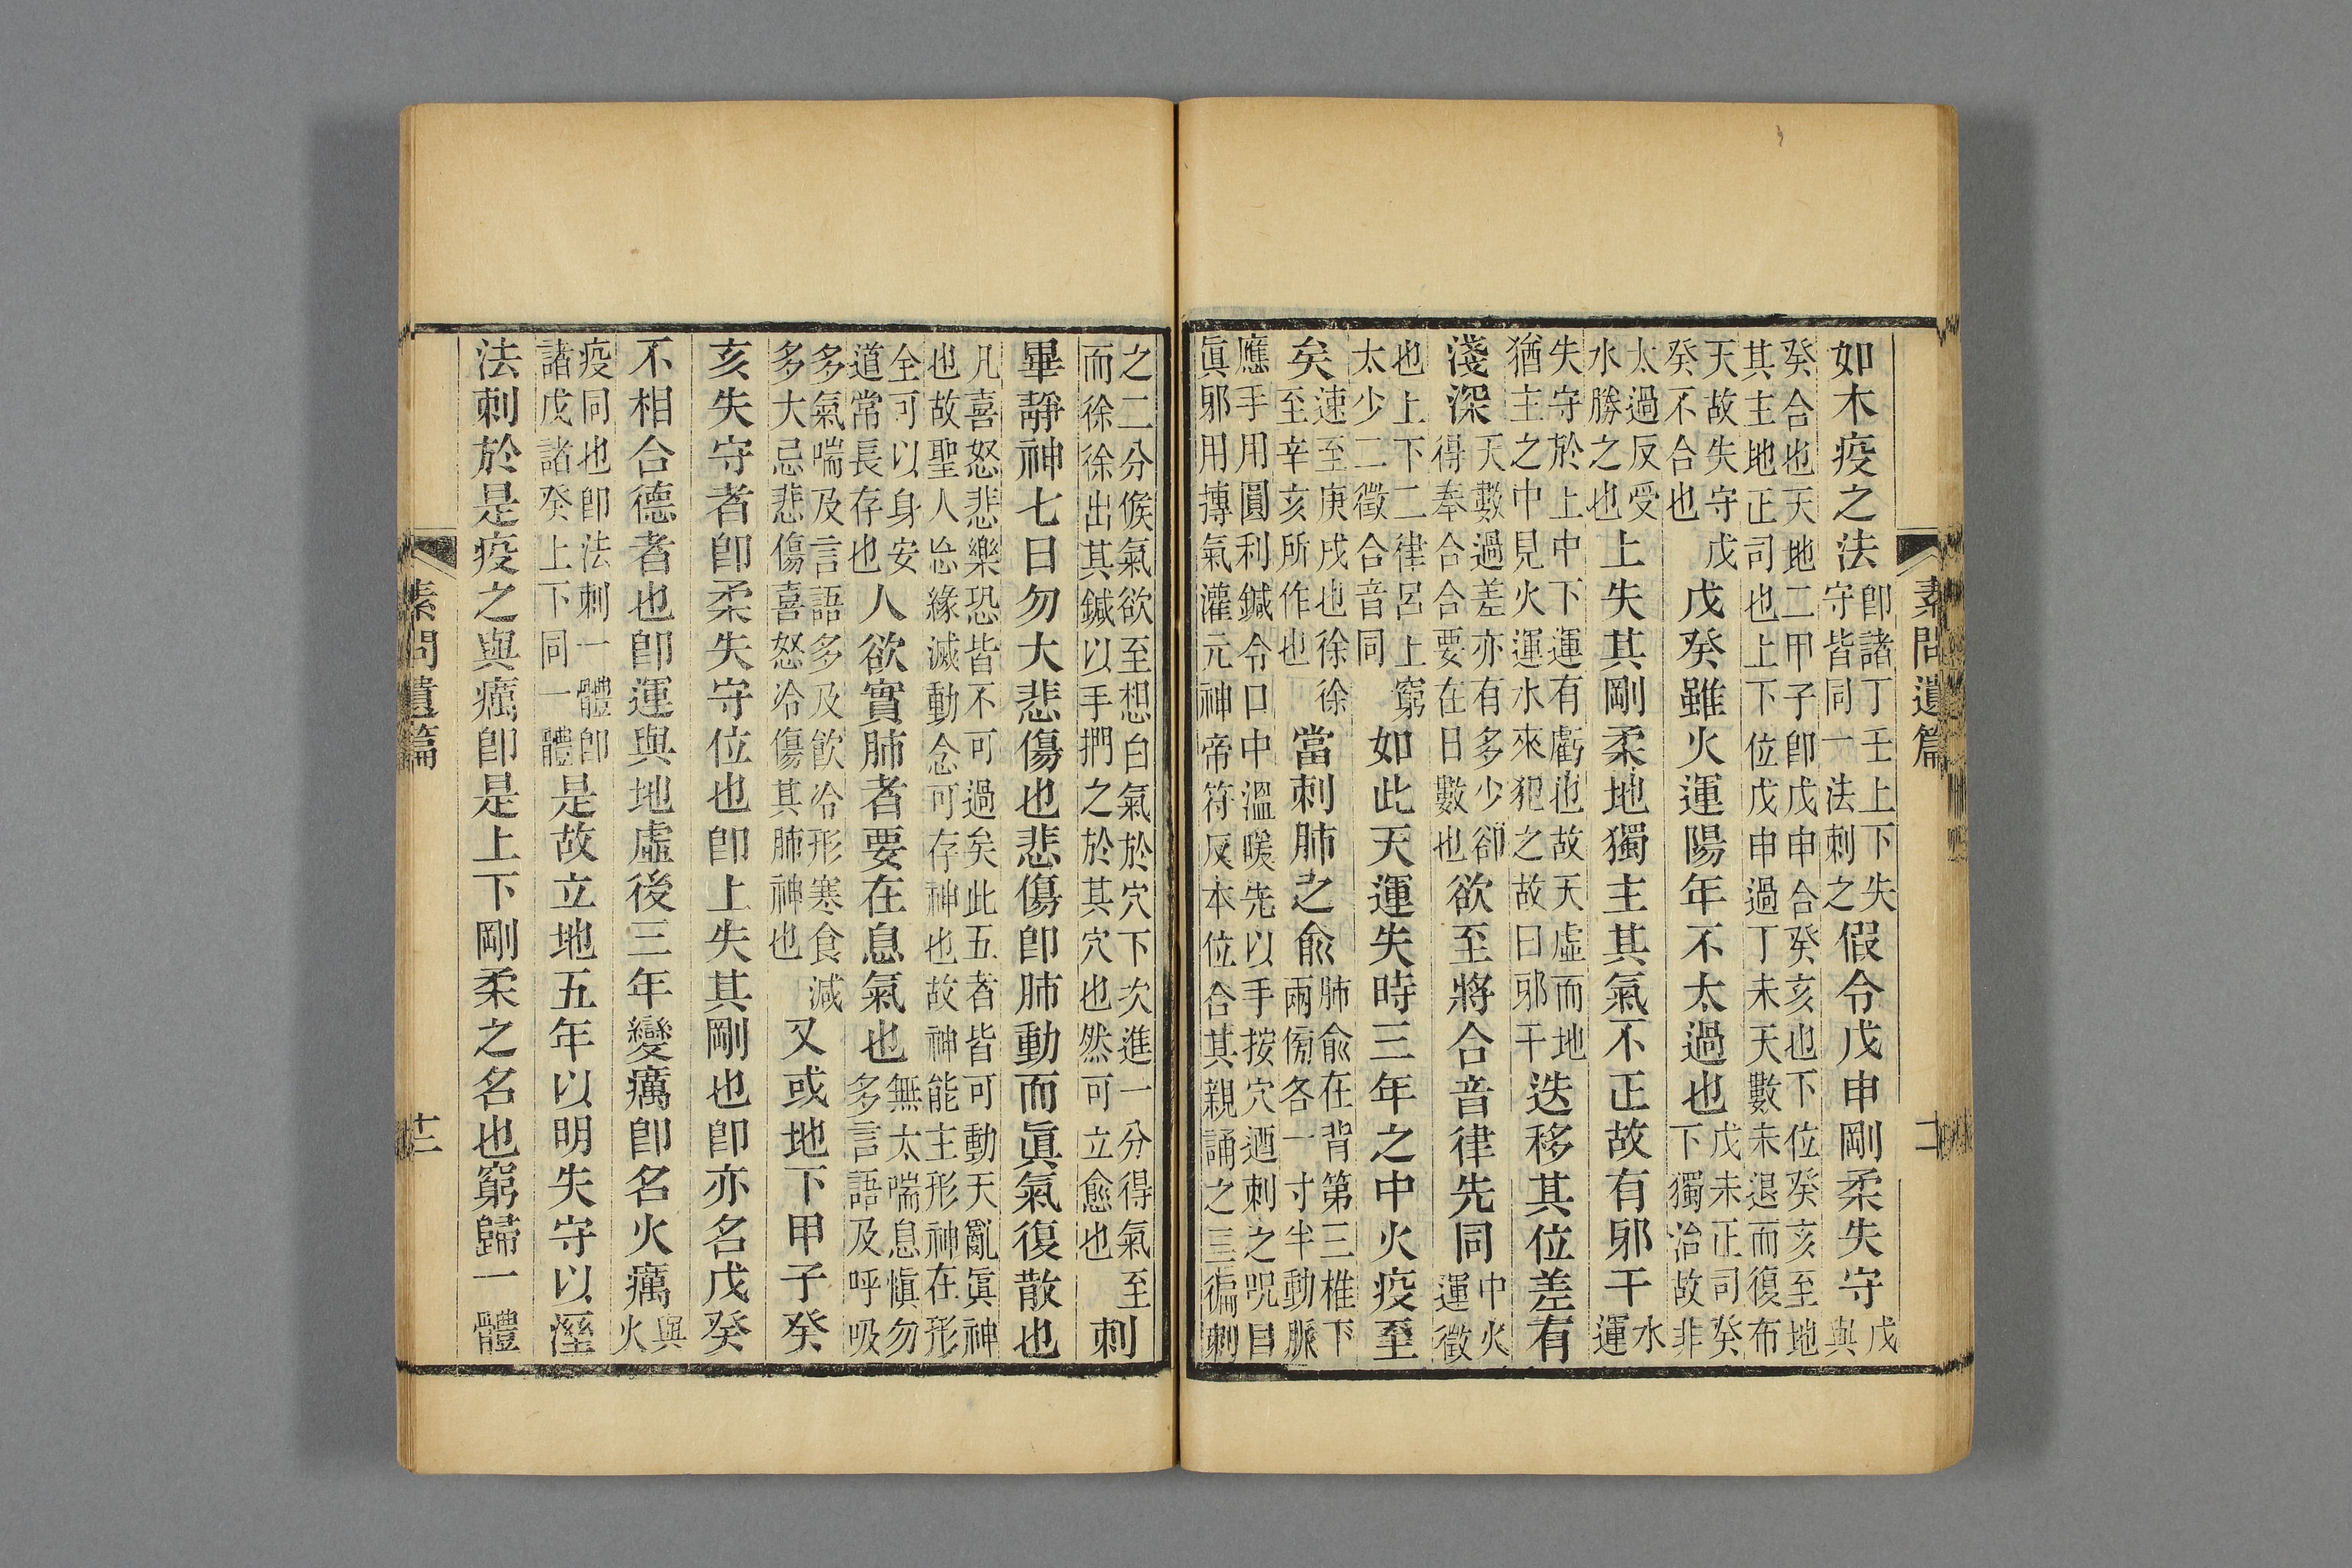 素問遺篇
如木疫之法
卽諸丁壬上下失
守皆同一法刺之
假令戊申剛柔失守
戊
與
癸合也天地二甲子卽戊申合癸亥也下位癸亥至地
其主地正司也上下位戊申過丁未天數未退而復布
天故失守戊
癸不合也
戊癸雖火運陽年不太過也
戊未正司癸
下獨治故非
太過反受
水勝之也
上失其剛柔地獨主其氣不正故有邪干
水
運
失守於上中下運有虧也故天虛而地
猶主之中見火運水來犯之故曰邪干
迭移其位差有
淺深
天數過差亦有多少卻
得奉合合要在日數也
欲至將合音律先同
中火
運徵
也上下二律呂上窮
太少二徵合音同
如此天運失時三年之中火疫至
矣
速至庚戌也徐徐
至辛亥所作也
當刺肺之俞
肺俞在背第三椎下
兩傍各一寸半動脈
應手用圓利鍼令口中溫暖先以手按穴迺刺之咒曰
眞邪用摶氣灌元神帝符反本位合其親誦之三徧刺
之二分候氣欲至想白氣於穴下次進一分得氣至
而徐徐出其鍼以手捫之於其穴也然可立愈也
刺
畢靜神七日勿大悲傷也悲傷卽肺動而眞氣復散也
凡喜怒悲樂恐皆不可過矣此五者皆可動天亂眞神
也故聖人忘緣滅動念可存神也故神能主形神在形
全可以身安
道常長存也
人欲實肺者要在息氣也
無太喘息愼勿
多言語及呼吸
多氣喘及言語多及飮冷形寒食減
多大忌悲傷喜怒冷傷其肺神也
又或地下甲子癸
亥失守者卽柔失守位也卽上失其剛也卽亦名戊癸
不相合德者也卽運與地虛後三年變癘卽名火癘
與
火
疫同也卽法刺一體卽
諸戊諸癸上下同一體
是故立地五年以明失守以溼
法刺於是疫之與癘卽是上下剛柔之名也窮歸一體
素問遺篇
十二